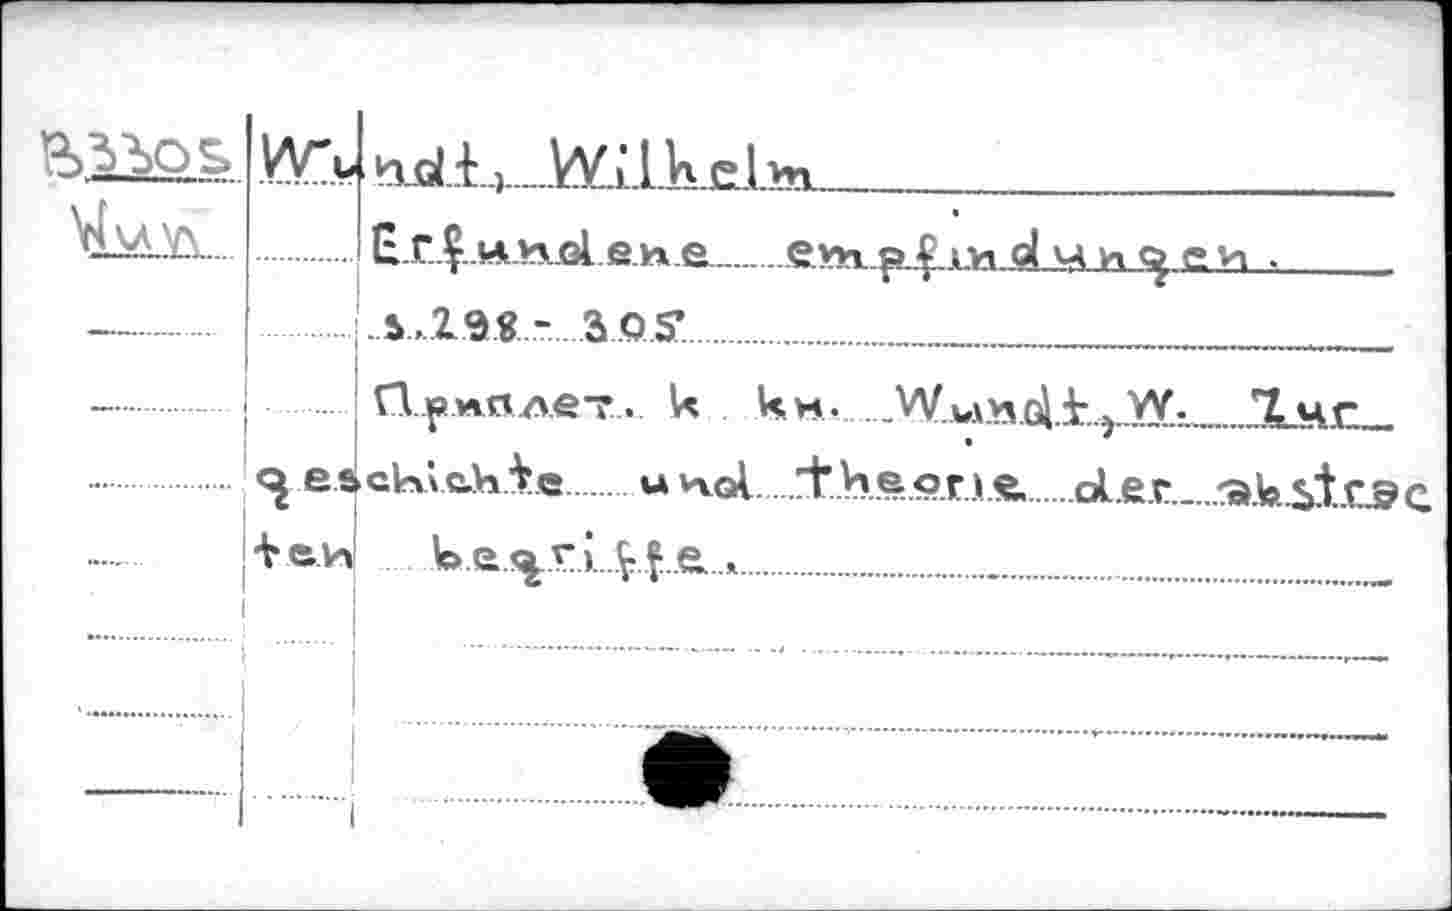 B3305 Wundt, Wilhelm
Wun Erfundene empfindungen.
s.298-305
Приплет. к кн. Wundt, W. Zur
geschichte und theorie der abstrac
ten begriffe.